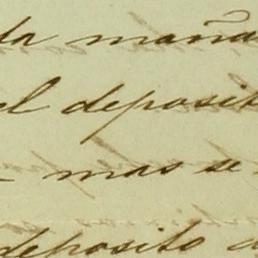 da maña
el deposit
mas se
deposito d